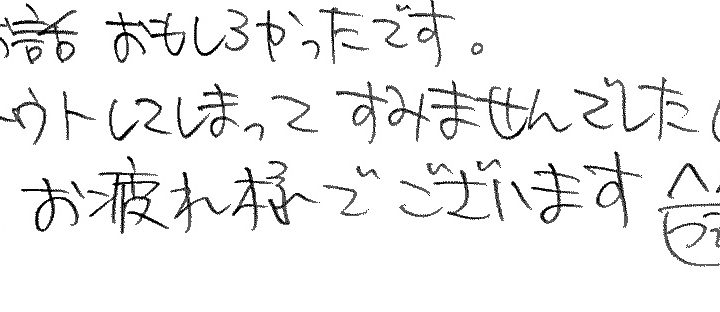 話 おもしろかったです。
ウトしてしまって すみませんでした
お疲れ様でございます